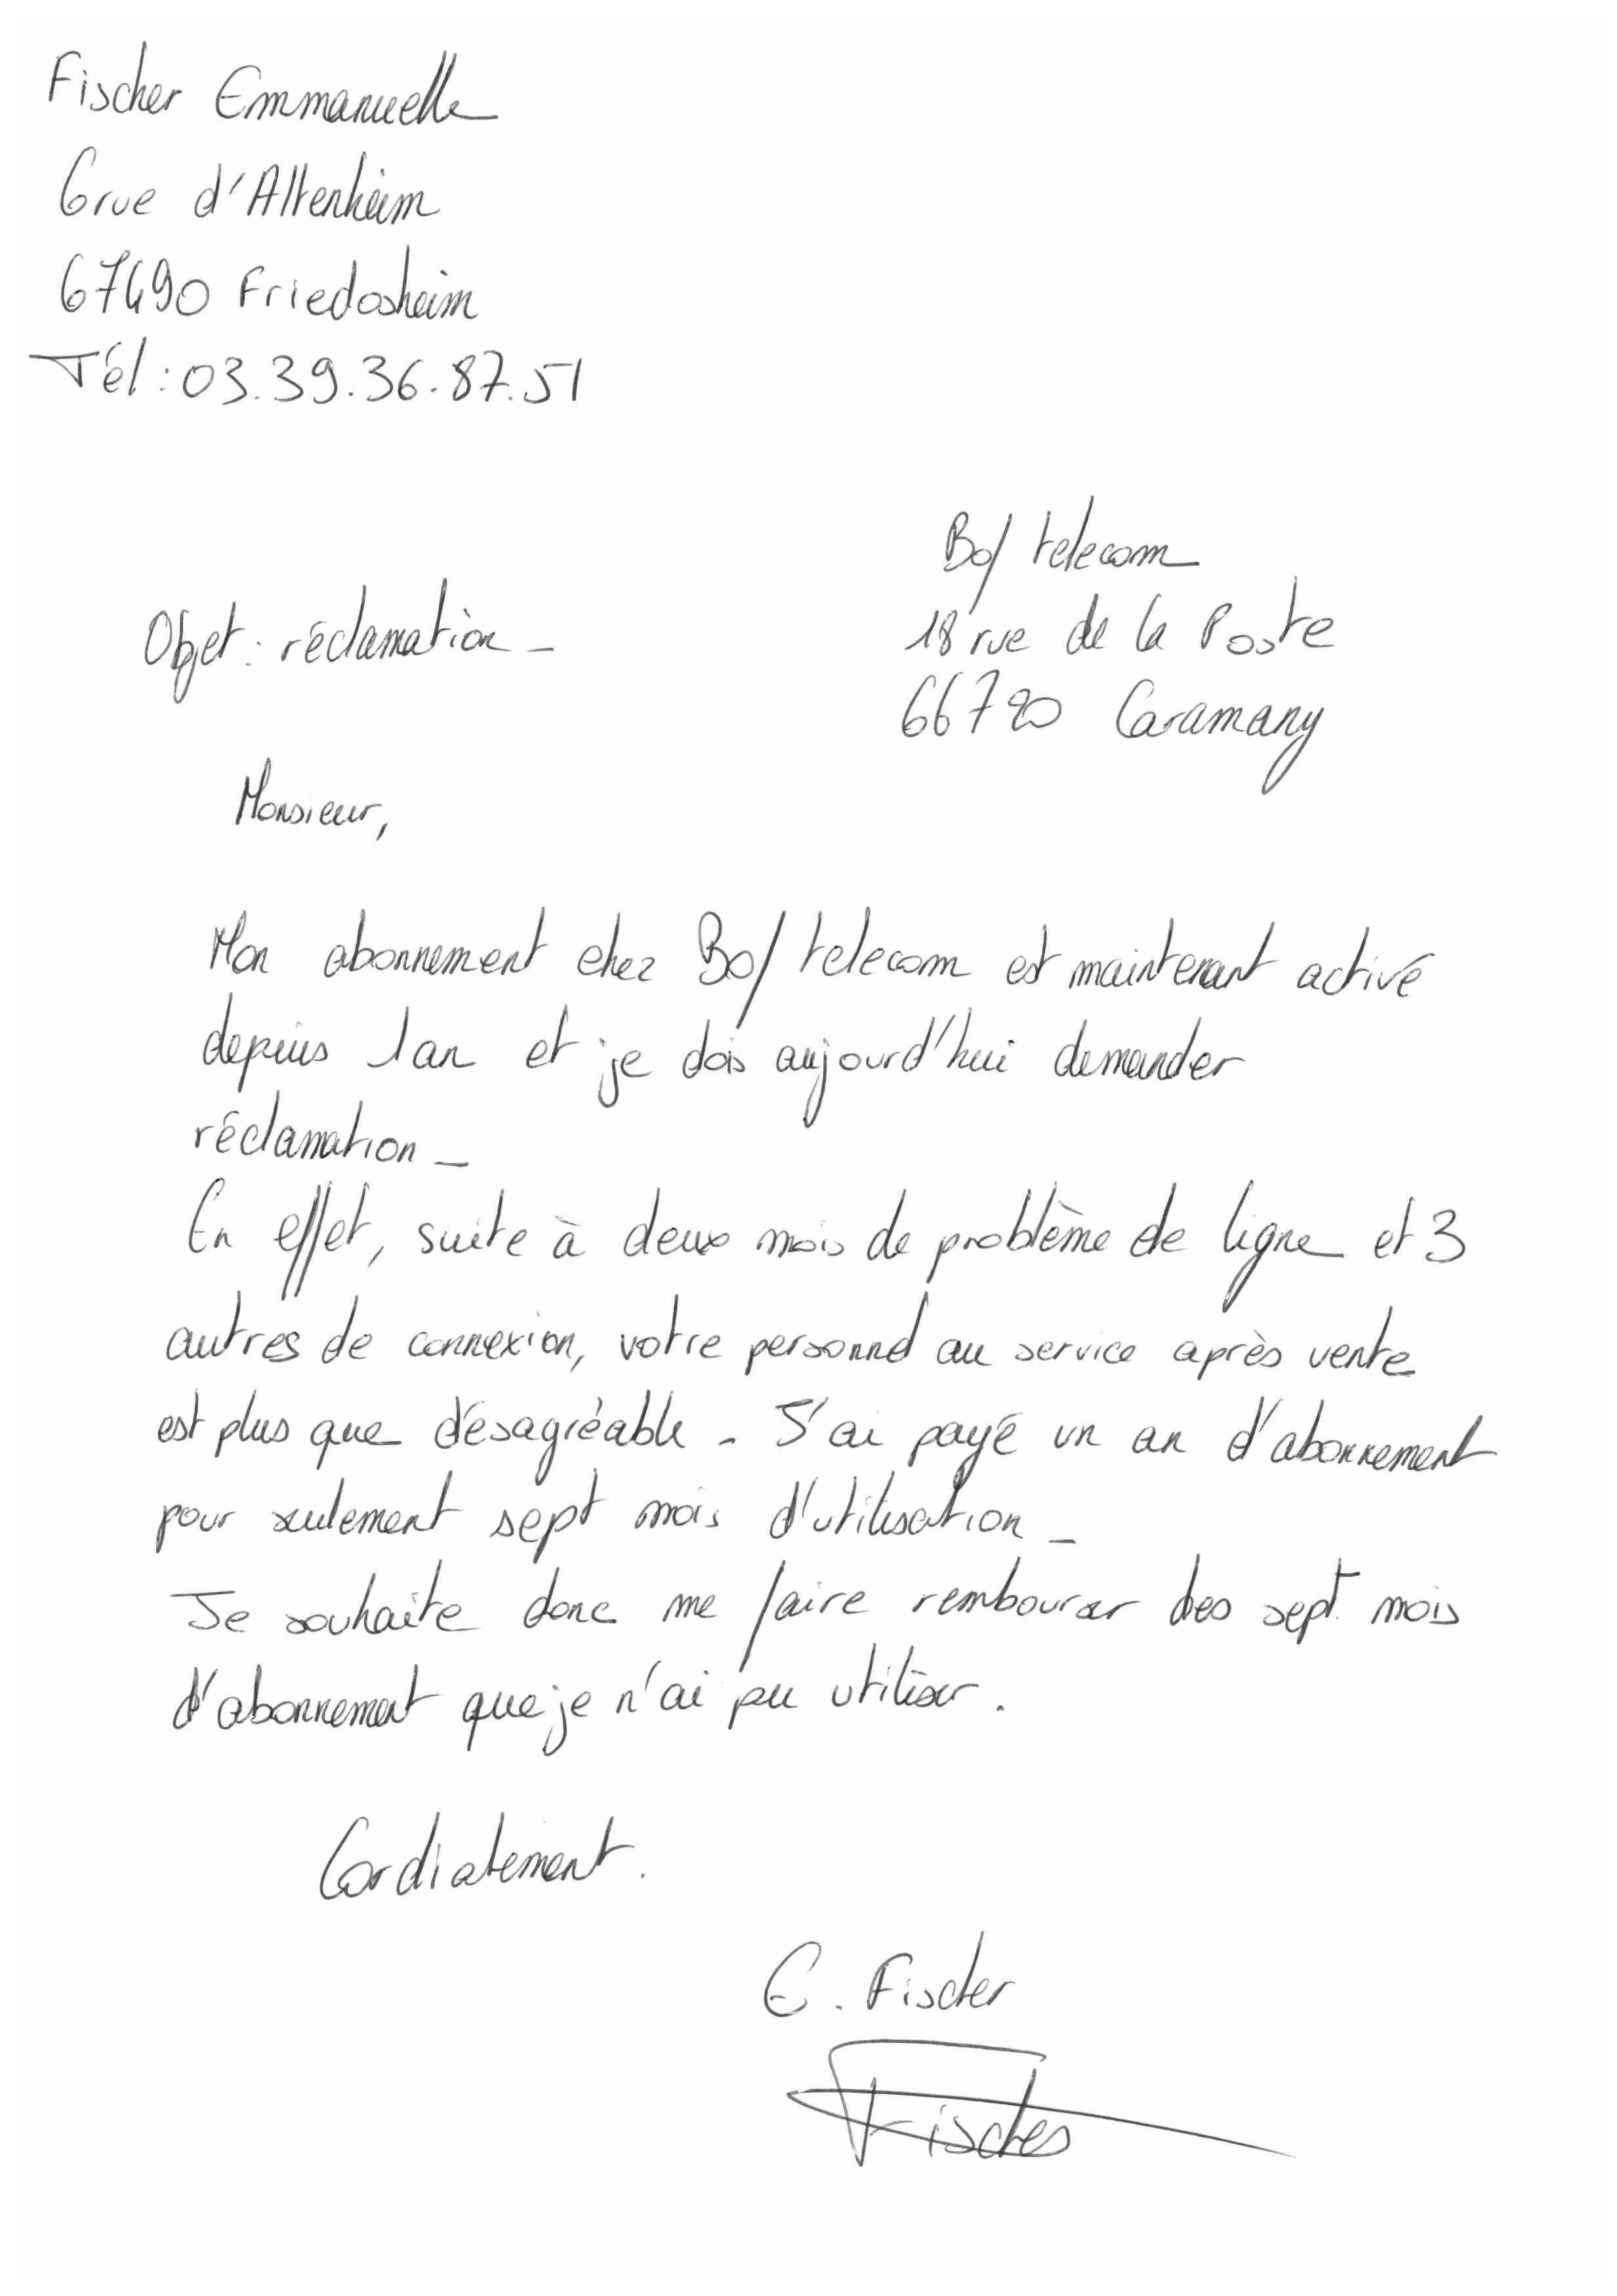 Fischer Emmanuelle
6 rue d'Altenheim
67490 Friedosheim
Tél : 03.39.36.87.51
Bof telecom
18 rue de la Poste
66720 Caramany
Objet : réclamation _
Monsieur,
Mon abonnement chez Bof telecom est maintenant activé
depuis 1 an et je dois aujourd'hui demander
réclamation _
En effet, suite à deux mois de problème de ligne et 3
autres de connexion, votre personnel au service après vente
est plus que désagréable _ J'ai payé un an d'abonnement
pour seulement sept mois d'utilisation _
Je souhaite donc me faire rembourser des sept mois
d'abonnement que je n'ai pu utiliser.
Cordialement.
E. Fischer
Fischer